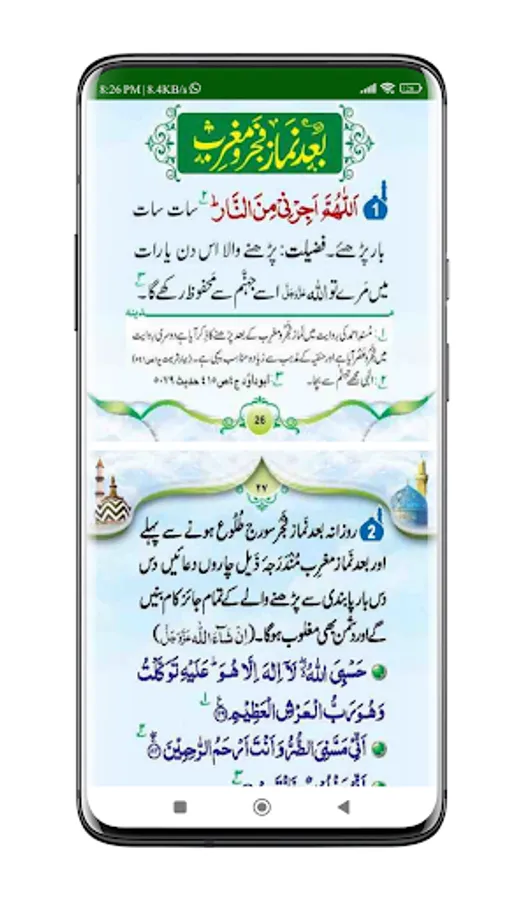 8:26 PM | 8.4KB/s
بعد نماز فجر و مغرب
1 اَللّٰهُمَّ اَجِرْنِیْ مِنَ النَّارِ ؕ ۲ سات سات
بار پڑھئے۔ فضیلت: پڑھنے والا اس دن یا رات
میں مَرے تو اللہ عَزَّوَجَلَّ اسے جہنَّم سے مَحفوظ رکھے گا۔ ۳
مدینہ
۲: الٰہی مجھے جہنَّم سے بچا۔ ۳ ابوداؤد ج ۴ ص ۴۱۵ حدیث ۵۰۷۹
26
۲۷
2 روزانہ بعد نماز فَجْر سورج طُلُوع ہونے سے پہلے
اور بعد نمازِ مغرِب مُنْدَرَجہ ذَیل چاروں دعائیں دَس
دَس بار پابندی سے پڑھنے والے کے تمام جائز کام بنیں
گے اور دشمن بھی مغلوب ہوگا۔ (اِنْ شَآءَ اللّٰه عَزَّوَجَلَّ)
حَسْبِیَ اللّٰهُ ۖ لَاۤ اِلٰهَ اِلَّا هُوَ ؕ عَلَیْهِ تَوَكَّلْتُ
وَهُوَ رَبُّ الْعَرْشِ الْعَظِیْمِ ۱
اَنِّیْ مَسَّنِیَ الضُّرُّ وَاَنْتَ اَرْحَمُ الرّٰحِمِیْنَ ۲